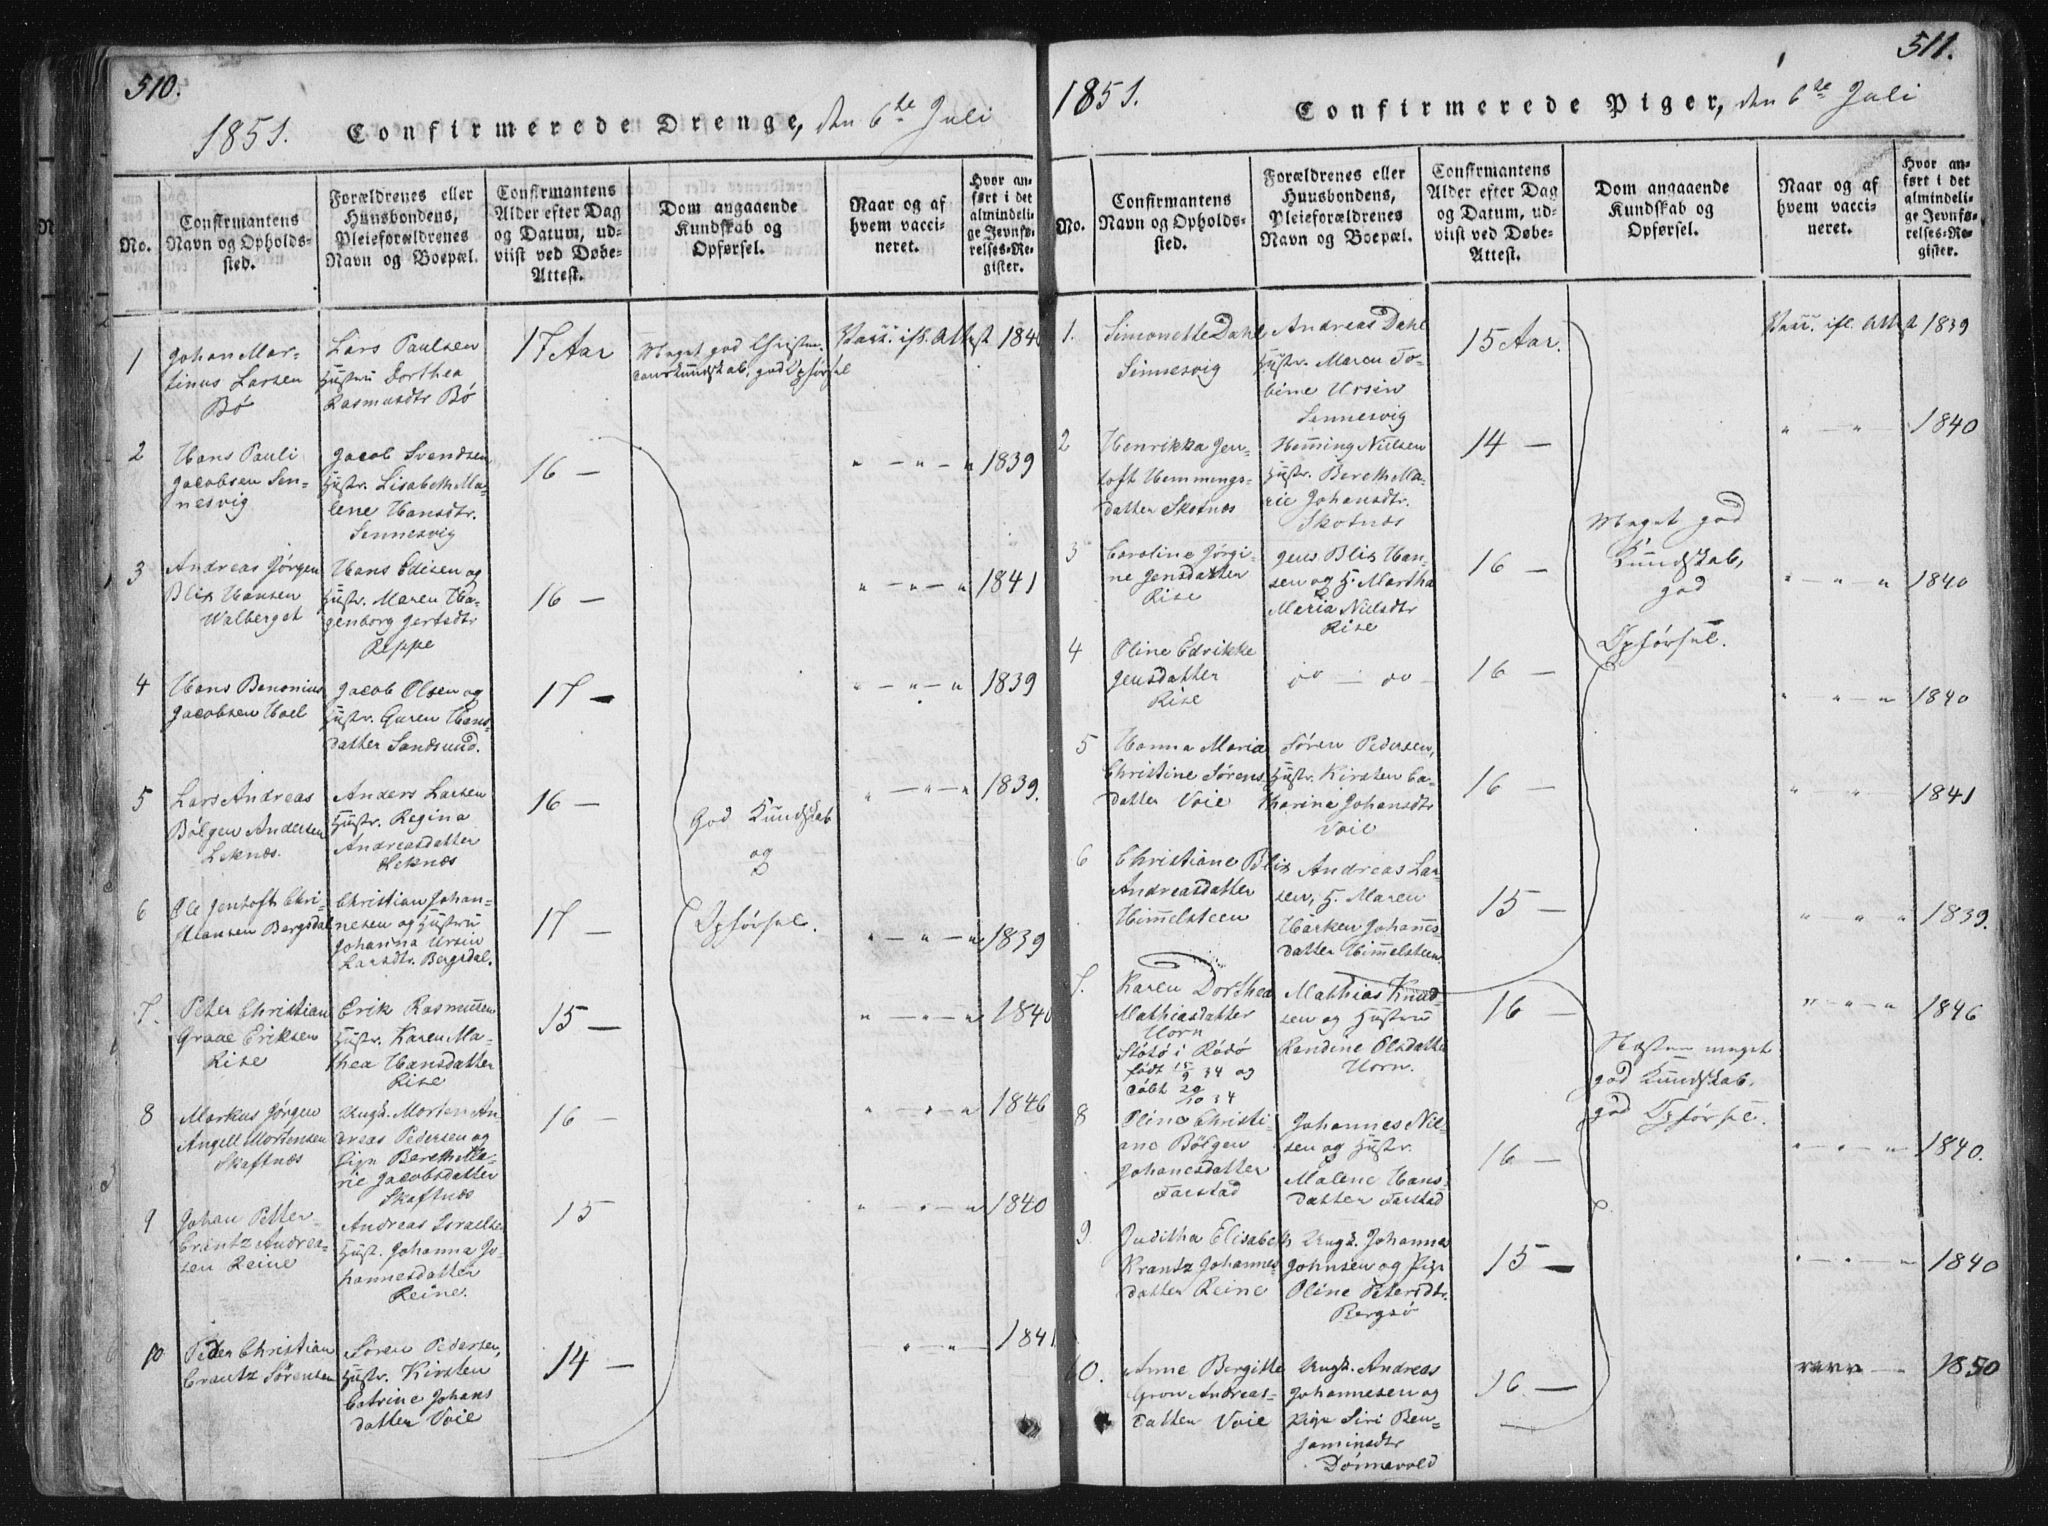 510.
1851. Confirmerede Drenge, den 6te Juli
No.
Confirmantens Navn og Opholdssted.
Forældrenes eller Huusbondens, Pleieforældrenes Navn og Boepæl.
Confirmantens Alder efter Dag og Datum, udviist ved Døbe-Attest.
Dom angaaende Kundskab og Opførsel.
Naar og af hvem vaccineret.
Hvor anført i det almindelige Jevnførelses-Register.
1
Johan Mar-
tinus Larsen
Bö
Lars Paulsen
Hustru Dorthea
Rasmusdtr Bö
17 Aar
Meget god Christen-
domskundskab, god Opförsel
Vacc. ifl. Attest 1840
2
Hans Pauli
Jacobsen Sen-
nesvig
Jacob Svendsen
Hustr. Lisabeth Ma-
lene Hansdtr.
Sennesvig
16 —
" — " — " 1839
3
Andreas Jörgen
Blix Hansen
Walberget
Hans Edisen og
Hustr. Maren Ha-
genborg Gertsdtr
Reppe
16 —
" — " — " 1841
4
Hans Benonius
Jacobsen Hoel
Jacob Olsen og
Hustr. Guren Hans-
datter Sandsund.
17 —
" — " — " 1839
5
Lars Andreas
Bölgen Andersen
Leknæs.
Anders Larsen
Hustr. Regina
Andreasdatter
Leknæs
16 —
God Kundskab
og
Opförsel.
" — " — " 1839.
6
Ole Jentoft Chri-
stiansen Bergsdal
Christian Johan-
nesen og Hustru
Johanna Ursin
Larsdtr. Bergsdal.
17 —
" — " — " 1839
7.
Peter Christian
Graae Eriksen
Rise
Erik Rasmussen
Hustr. Karen Ma-
thea Hansdatter
Rise
15 —
" — " — " 1840
8
Markus Jörgen
Angell Mortensen
Skaftnæs
Ungk. Morten An-
dreas Pedersen og
Pige Bereth Ma-
rie Jacobsdatter
Skaftnæs
16 —
" — " — " 1846
9
Johan Petter
Crantz Andrea-
sen Reine
Andreas Israelsen
Hust. Johanna Jo-
hannesdatter
Reine.
15
" — " — " 1840
10
Peder Christian
Crantz Sörensen
Sören Pedersen,
Hustr. Kirsten
Catrine Johans
datter Voie
14 —
" — " — " 1841
511.
1851. Confirmerede Piger, den 6te Juli
No.
Confirmantens Navn og Opholdssted.
Forældrenes eller Huusbondens, Pleieforældrenes Navn og Boepæl.
Confirmantens Alder efter Dag og Datum, udviist ved Døbe-Attest.
Dom angaaende Kundskab og Opførsel.
Naar og af hvem vaccineret.
Hvor anført i det almindelige Jevnførelses-Register.
1.
Simonette Dahl
Sennesvig
Andreas Dahl
Hustr. Maren To-
bine Ursin
Sennesvig
15 Aar.
Vacc. ifl. Attest 1839
2
Henrikka Jen-
toft Hemmings-
datter Skotnæs
Hemming Nielsen
Hustr. Bereth Ma-
rie Johansdtr.
Skotnæs
14 —
" — " — 1840
3
Caroline Jörgi-
ne Jensdatter
Rise
Jens Blix Han-
sen og H. Martha
Maria Nielsdtr
Rise
16 —
Meget god
Kundskab,
god
Opförsel.
" — " " 1840
4
Oline Edrikke
Jensdatter
Rise
do — do —
16 —
" " — " 1840
5
Hanna Maria
Christine Sörens
datter Voie
Sören Pedersen,
Hustr. Kirsten Ca-
tharina Johansdtr
Voie
16 —
" " — " 1841
6
Christiane Blix
Andreasdatter
Himmelsteen
Andreas Lar-
sen, H. Maren
Harken Johannes-
datter Himmelsteen.
15 —
" " " 1839.
7.
Karen Dorthea
Mathiasdatter
Horn
Stötö i Rödö
födt 15/9 34 og
döbt 20/10 34
Mathias Knud-
sen og Hustru
Rendine Olsdatter
Horn.
16 —
Næsten meget
god Kundskab.
god Opförsel.
" — " — " 1846
8
Oline Christi-
ane Bölgen
Johanesdatter
Farstad
Johannes Nil-
sen og Hustr.
Malene Hans-
datter Farstad
16 —
" — " — " 1840.
9
Juditha Elisabeth
Krantz Johannes-
datter Reine
Ungk. Johannes
Johnsen og Pige
Oline Petersdtr.
Bergsö
15 —
" — " — " 1840
10.
Anne Bergitte
Grön Andreas-
datter Voie
Ungk. Andreas
Johannesen og
Pige Siri Ben-
jaminsdtr
Dönnevold
16 —
1850